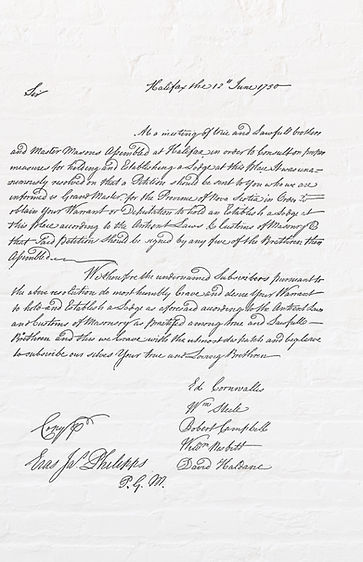 Halifax the 12th June 1750
Sir
At a meeting of true and Lawfull brothers
and Master Masons Assembled at Halifax in order to Consult on proper
measures for holding and Establishing a Lodge at this Place It was una=
nimously resolved on that a Petition should be sent to You who we are
informed is Grand Master for the Province of Nova Scotia in Order to
obtain Your Warrant or Deputation to hold and Establish a Lodge at
this Place according to the Antient Laws & Customs of Masonry &
that Said Petition should be signed by any five of the Brethren then
Assembled
We therefore the undernamed Subscribers pursuant to
the above resolution do most humbly Crave and desire Your Warrant
to hold and Establish a Lodge as aforesaid according to the Antient Laws
and Customs of Masonry as practised among true and Lawfull
Brethren and this we Crave with the utmost dispatch and beg leave
to subscribe our selves Your true and Loving Brethren
Ed Cornwallis
Wm Steele
Robert Campbell
Willm Nesbitt
David Haldane
Copy Pr
Eras Jas Philipps
P. G. M.